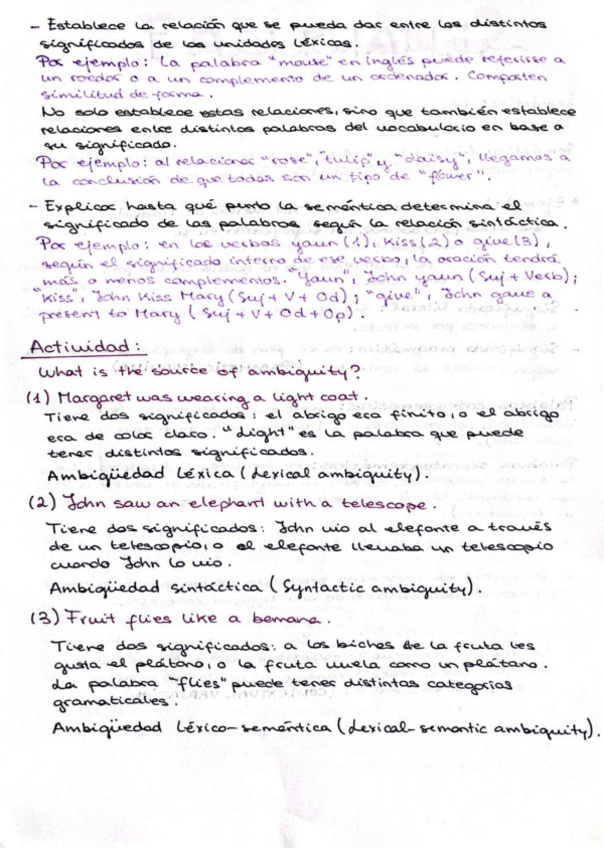 - Establece la relación que se pueda dar entre los distintos
significados de las unidades léxicas.
Por ejemplo: la palabra "mouse" en inglés puede referirse a
un roedor o a un complemento de un ordenador. Comparten
similitud de forma.
No solo establece estas relaciones, sino que también establece
relaciones entre distintas palabras del vocabulario en base a
su significado.
Por ejemplo: al relacionar "rose", "tulip" y "daisy", llegamos a
la conclusión de que todas son un tipo de "flower".
- Explicar hasta qué punto la semántica determina el
significado de las palabras según la relación sintáctica.
Por ejemplo: en los verbos yawn (1), Kiss (2) o give (3),
según el significado interno de ese verbo, la oración tendrá
más o menos complementos. "Yawn", John yawn (Suj + Verb);
"Kiss", John Kiss Mary (Suj + V + Od); "give", John gave a
present to Mary (Suj + V + Od + Op).
Actividad:
What is the source of ambiguity?
(1) Margaret was wearing a light coat.
Tiene dos significados: el abrigo era finito, o el abrigo
era de color claro. "Light" es la palabra que puede
tener distintos significados.
Ambigüedad léxica (Lexical ambiguity).
(2) John saw an elephant with a telescope.
Tiene dos significados: John vio al elefante a través
de un telescopio, o el elefante llevaba un telescopio
cuando John lo vio.
Ambigüedad sintáctica (Syntactic ambiguity).
(3) Fruit flies like a banana.
Tiene dos significados: a los bichos de la fruta les
gusta el plátano, o la fruta vuela como un plátano.
La palabra "flies" puede tener distintas categorías
gramaticales.
Ambigüedad léxico-semántica (Lexical-semantic ambiguity).